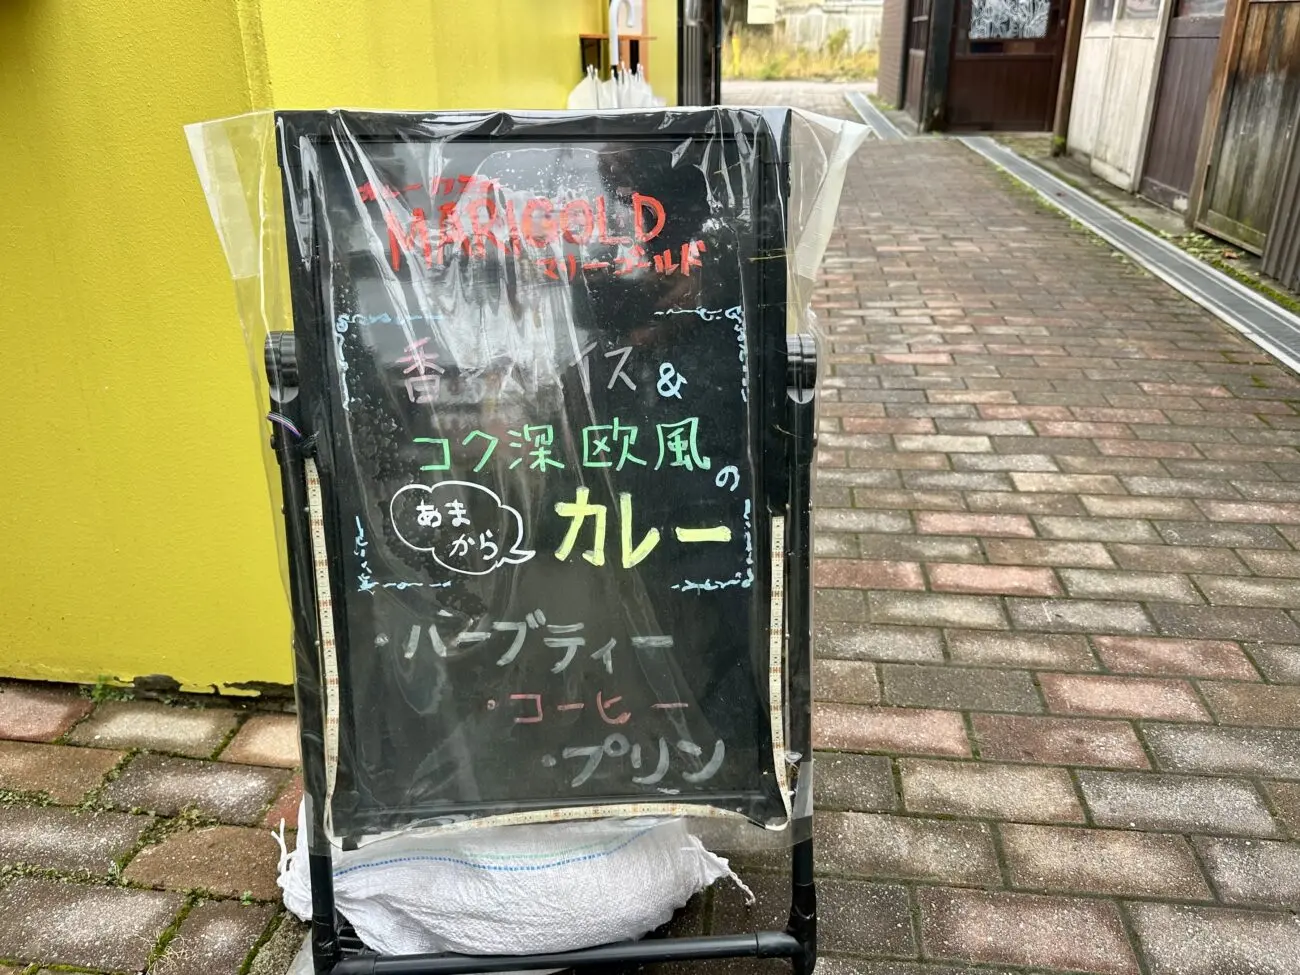 カレーカフェ
MARIGOLD
マリーゴールド
香るスパイス &
コク深 欧風の
あま
から
カレー
・ハーブティー
・コーヒー
・プリン